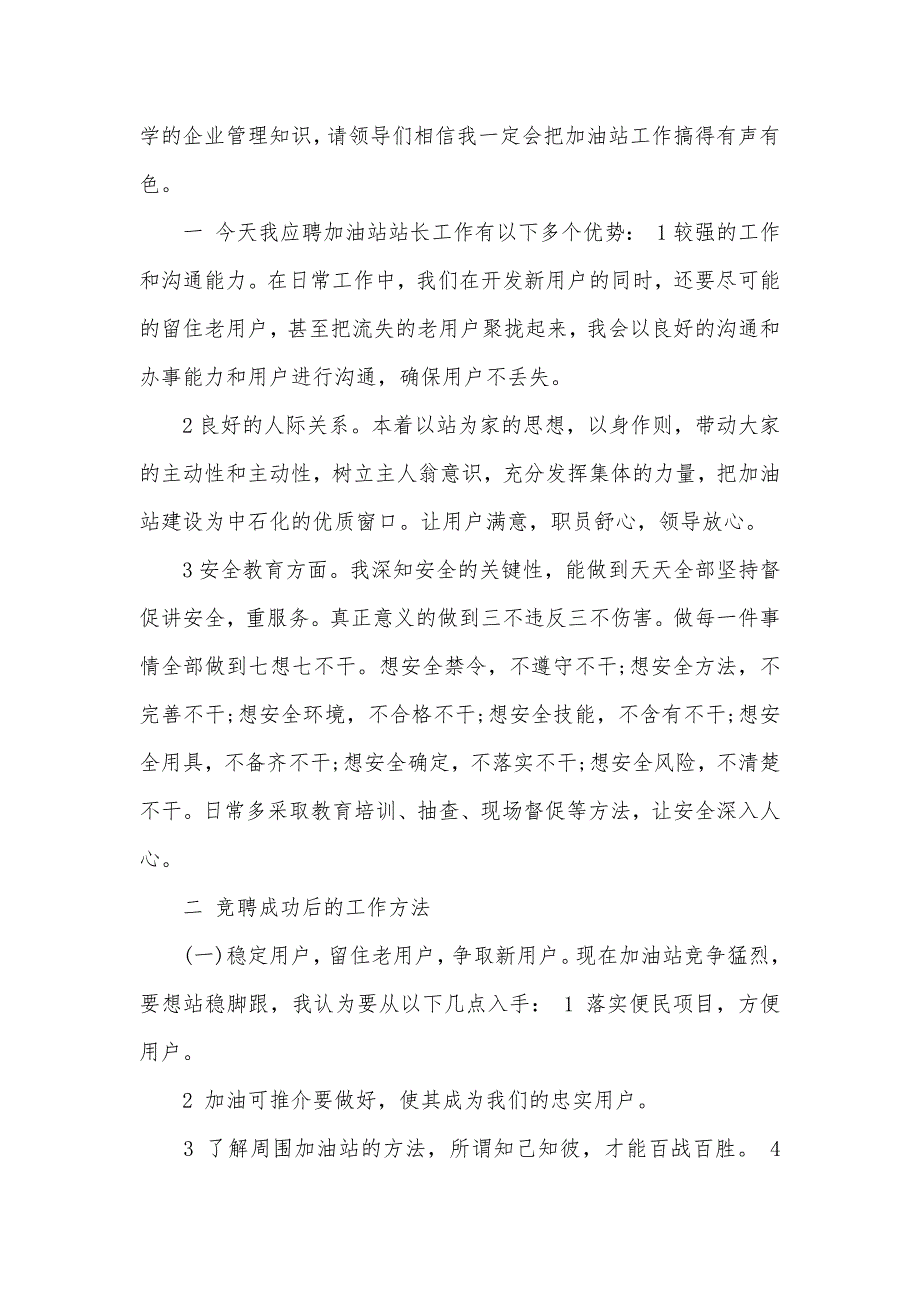 学的企业管理知识,请领导们相信我一定会把加油站工作搞得有声有
色。
一 今天我应聘加油站站长工作有以下多个优势： 1较强的工作
和沟通能力。在日常工作中，我们在开发新用户的同时，还要尽可能
的留住老用户，甚至把流失的老用户聚拢起来，我会以良好的沟通和
办事能力和用户进行沟通，确保用户不丢失。
2良好的人际关系。本着以站为家的思想，以身作则，带动大家
的主动性和主动性，树立主人翁意识，充分发挥集体的力量，把加油
站建设为中石化的优质窗口。让用户满意，职员舒心，领导放心。
3安全教育方面。我深知安全的关键性，能做到天天全部坚持督
促讲安全，重服务。真正意义的做到三不违反三不伤害。做每一件事
情全部做到七想七不干。想安全禁令，不遵守不干;想安全方法，不
完善不干;想安全环境，不合格不干;想安全技能，不含有不干;想安
全用具，不备齐不干;想安全确定，不落实不干;想安全风险，不清楚
不干。日常多采取教育培训、抽查、现场督促等方法，让安全深入人
心。
二 竞聘成功后的工作方法
(一)稳定用户，留住老用户，争取新用户。现在加油站竞争猛烈，
要想站稳脚跟，我认为要从以下几点入手： 1 落实便民项目，方便
用户。
2 加油可推介要做好，使其成为我们的忠实用户。
3 了解周围加油站的方法，所谓知己知彼，才能百战百胜。 4